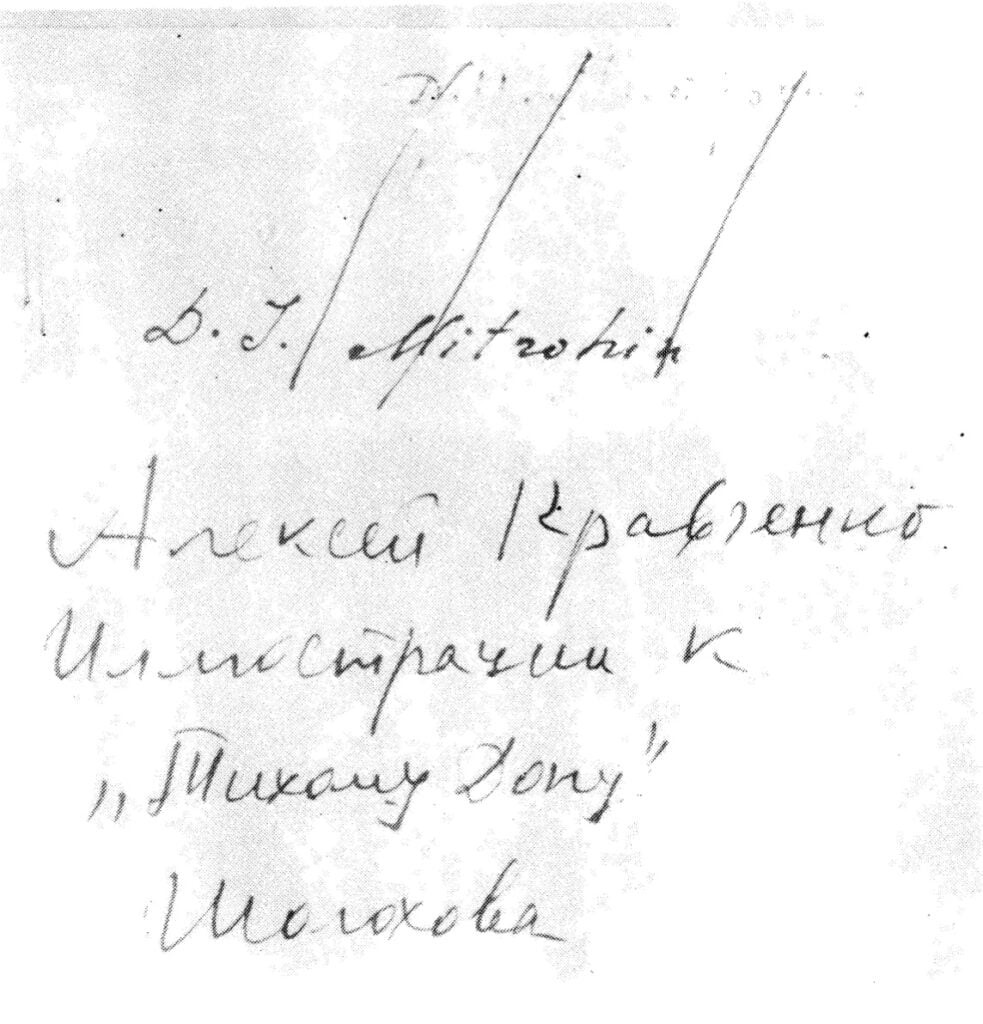 D. I. Mitrohin
Алексей Кравченко
Иллюстрации к
„Тихому Дону"
Шолохова